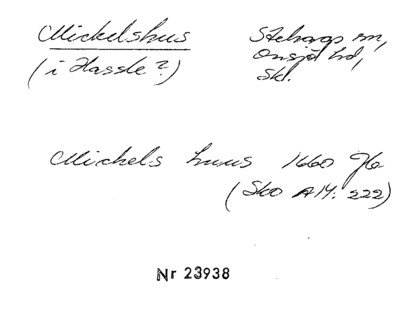 Mickelshus
(i Hassle?)
Stehags sn,
Onsjö hd,
Skl.
Mickels huus 1660 Jb
(Sko AM: 222)
Nr 23938